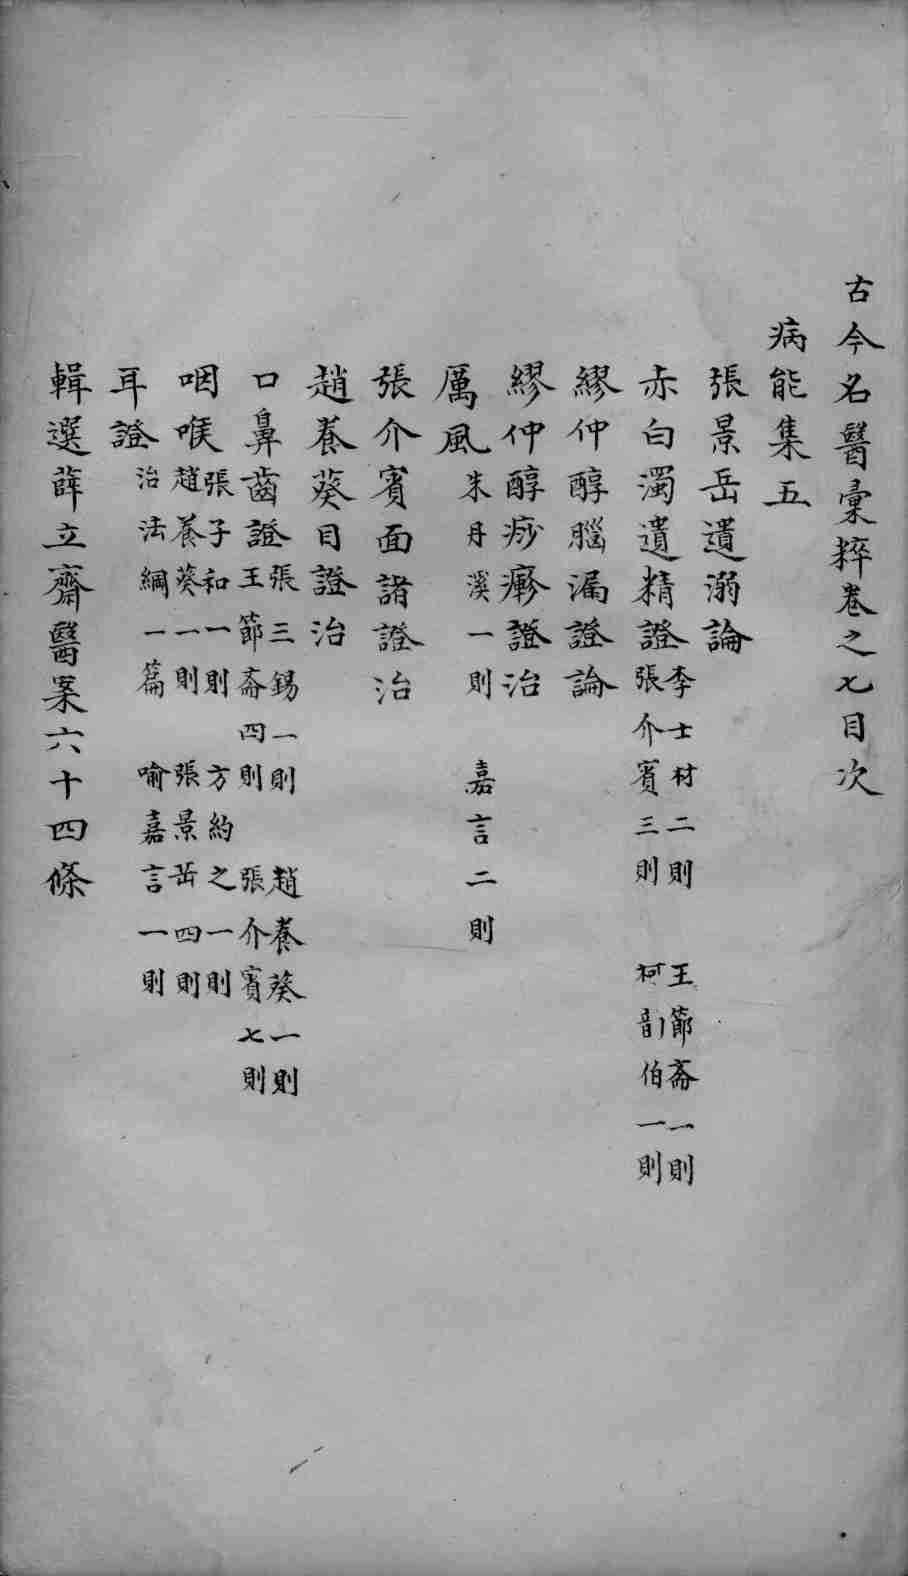 古今名醫彙粹卷之七目次
病能集五
張景岳遺溺論
赤白濁遺精證李士材二則 王節斎一則 張介賓三則 柯韵伯一則
繆仲醇腦漏證論
繆仲醇痧瘮證治
厲風朱丹溪一則 嘉言二則
張介賓面諸證治
趙養葵目證治
口鼻齒證張三錫一則 趙養葵一則 王節斎四則 張介賓七則
咽喉張子和一則 方約之一則 趙養葵一則 張景岳四則
耳證治法綱一篇 喻嘉言一則
輯選薛立齋醫案六十四條